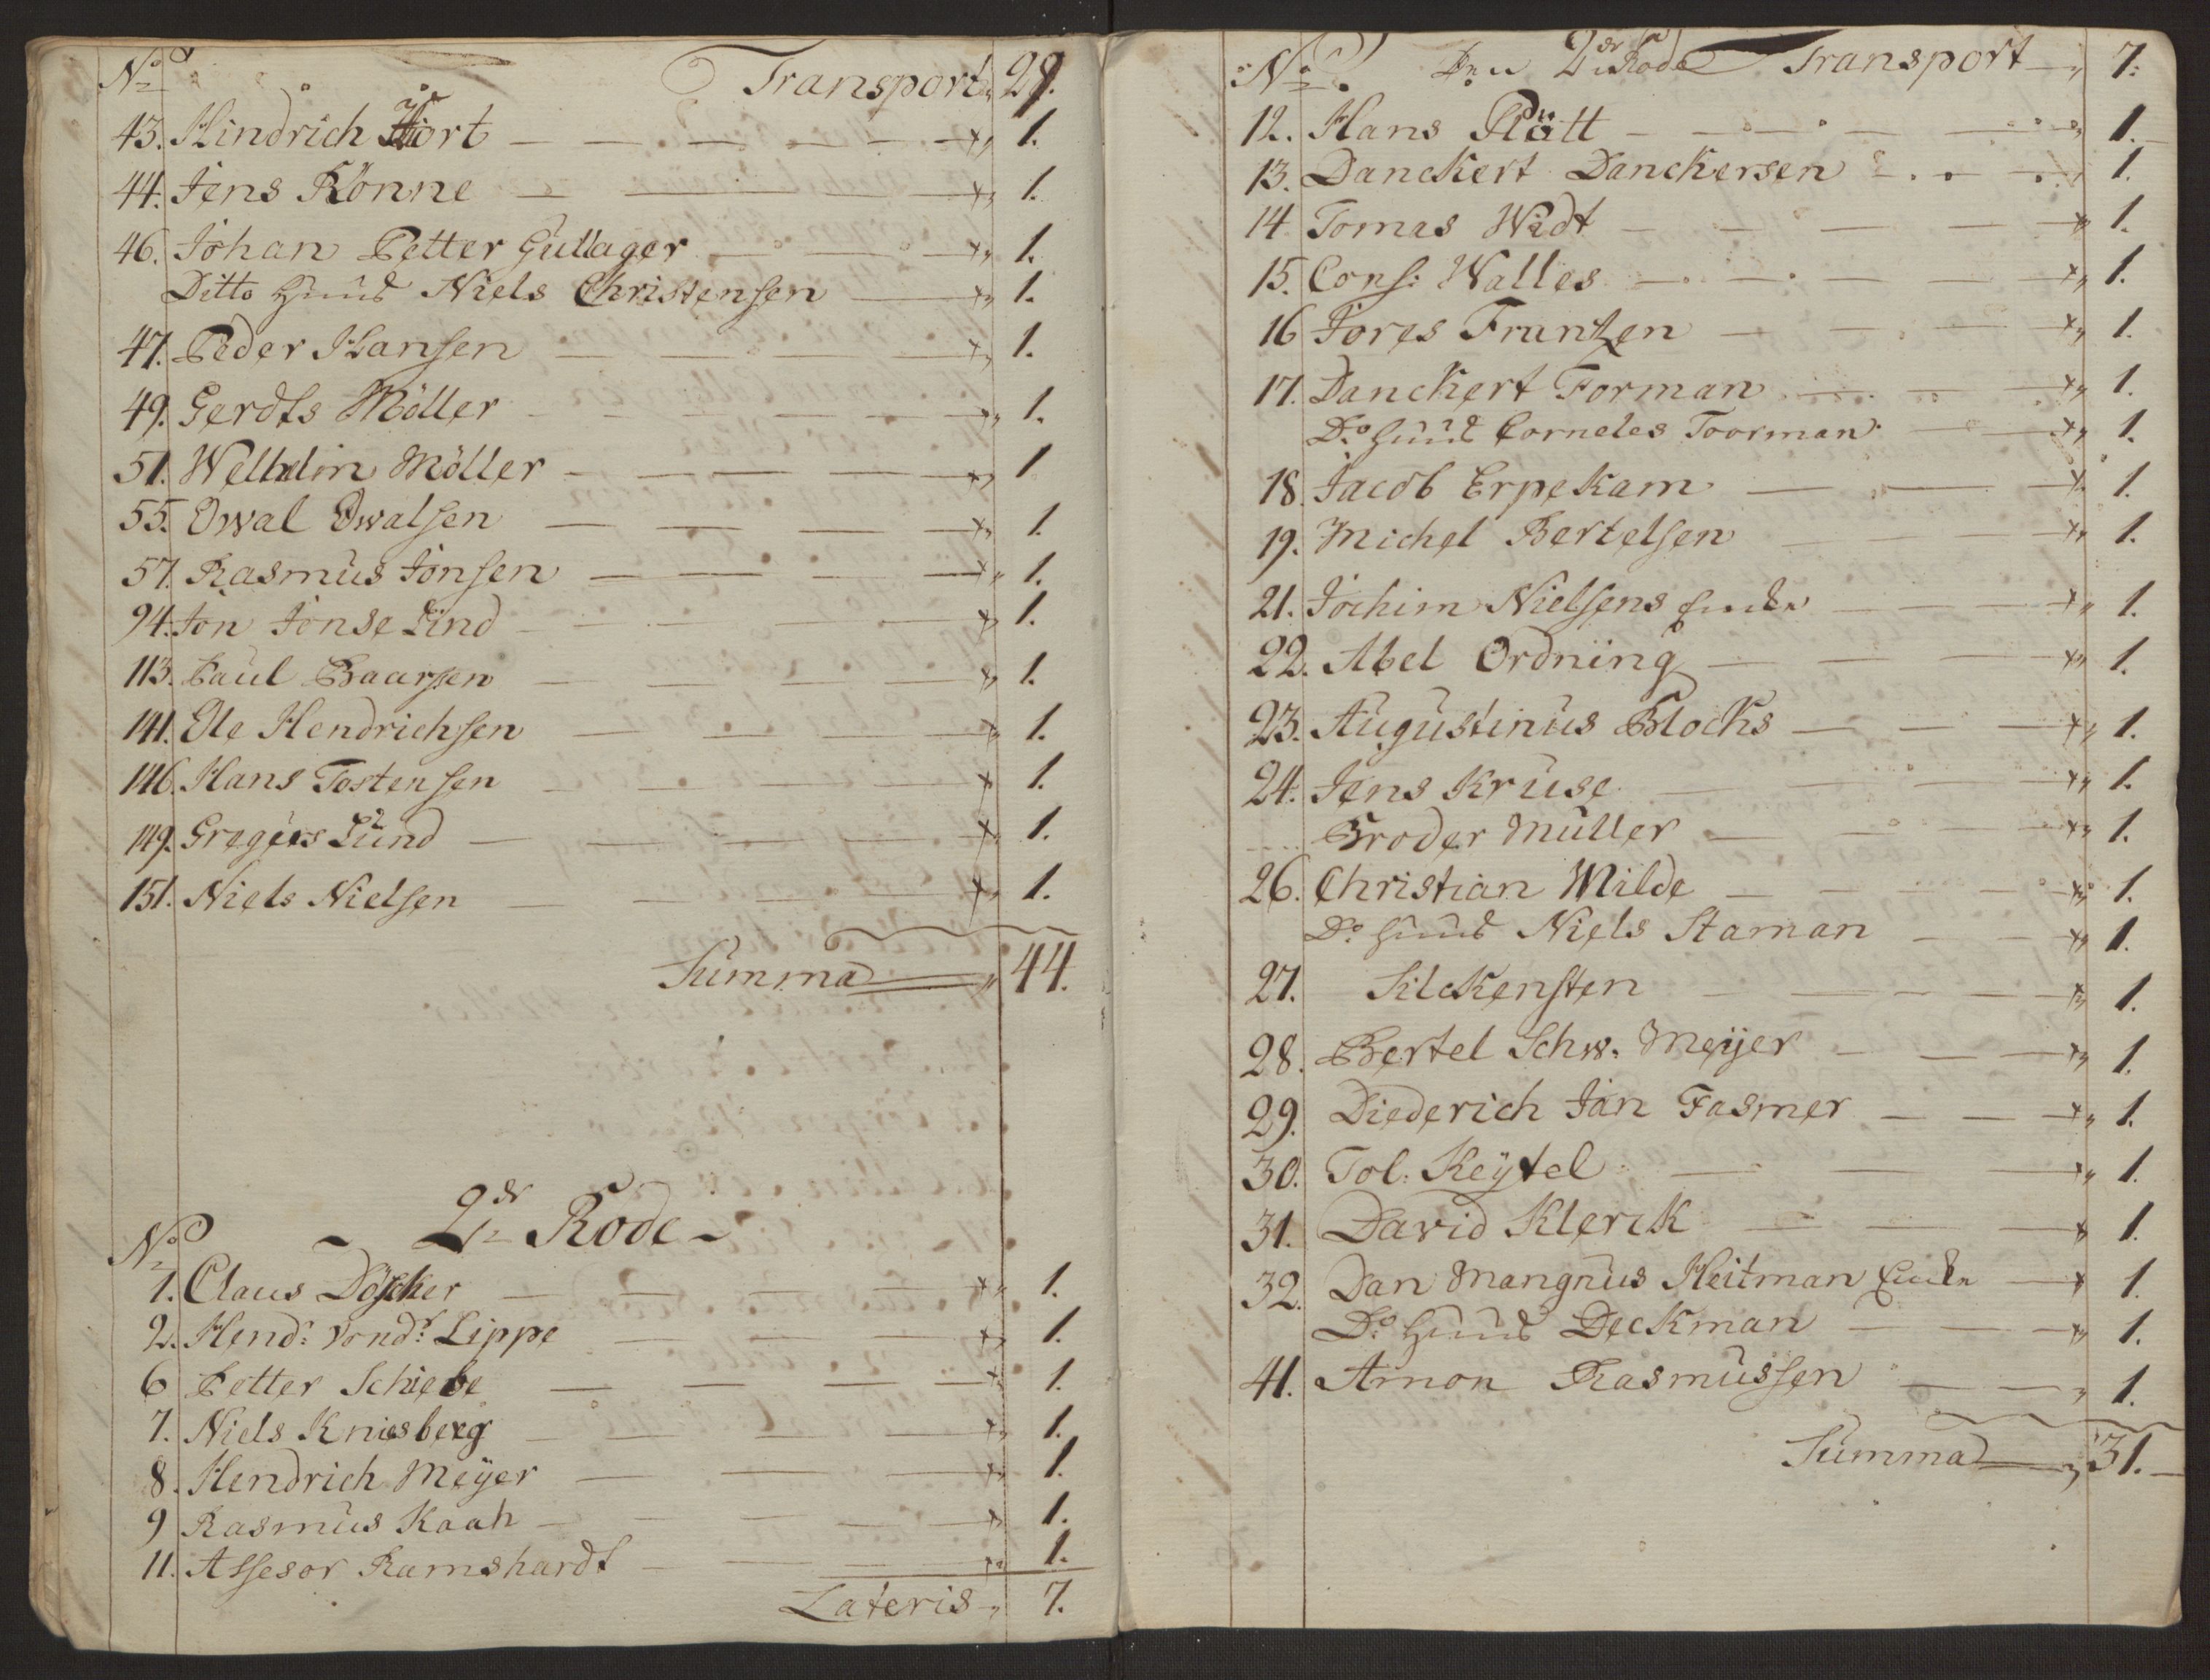 No Transport 29.
43. Hindrich Hiort 1.
44. Jens Rönne 1.
46. Johan Petter Gullager 1.
Ditto Huus Niels Christensen 1.
47. Peder Hansen 1.
49. Gerdts Möller 1.
51. Welhelm Möller 1
55. Owal Owalsen 1.
57. Rasmus Jonsen 1.
94. Jon Jonse Lind 1.
113. Paul Baarsen 1.
141. Ole Hendrichsen 1.
146. Hans Tostensen 1.
149. Gregers Lund 1.
151. Niels Nielsen 1.
Summa 44.
2dr Rode
No
1. Claus Döscker 1.
2. Hend: vond: Lippe 1.
6 Petter Schiebe 1.
7. Niels Kniesberg 1.
8. Hendrich Meÿer 1.
9 Rasmus Kaah 1.
11. Assesor Ramshardt 1.
Lateris 7.
No Den 2dr Rode Transport 7.
12. Hans Plött 1.
13. Danckert Danckersen 1.
14 Tomas Widt 1.
15. Cons: Walles 1.
16 Jores Fruntzen 1.
17. Danckert Forman 1.
Do Huus Corneles Toorman 1.
18. Jacob Erpekam 1.
19. Michel Bertelsen 1.
21. Jochim Nielsens Encke 1.
22. Abel Ordning 1.
23. Augustinus Blocks 1.
24. Jens Kruse 1.
Broder Muller 1.
26. Christian Milde 1.
Do Huus Niels Staman 1.
27. Silckensten 1.
28. Bertel Schw. Meijer 1.
29. Diederich Jan Fasmer 1.
30. Tol: Keÿtel 1.
31. David Klerck 1.
32. Dan Mangnus Heitman Encke 1.
Do Huus Deckman 1.
41. Amon Rasmussen 1.
Summa 31.